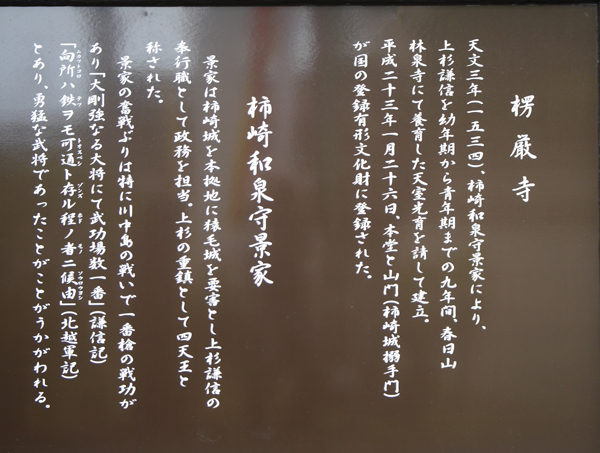 楞厳寺
天文三年(一五三四)、柿崎和泉守景家により、
上杉謙信を幼年期から青年期までの九年間、春日山
林泉寺にて養育した天室光育を請して建立。
平成二十三年一月二十六日、本堂と山門(柿崎城搦手門)
が国の登録有形文化財に登録された。
柿崎和泉守景家
景家は柿崎城を本拠地に猿毛城を要害とし上杉謙信の
奉行職として政務を担当。上杉の重鎮として四天王と
称された。
景家の奮戦ぶりは特に川中島の戦いで一番槍の戦功が
あり「大剛強なる大将にて武功場数一番」(謙信記)
「向所ハ鉄ヲモ可通ト存ル程ノ者ニ候由」(北越軍記)
とあり、勇猛な武将であったことがことがうかがわれる。